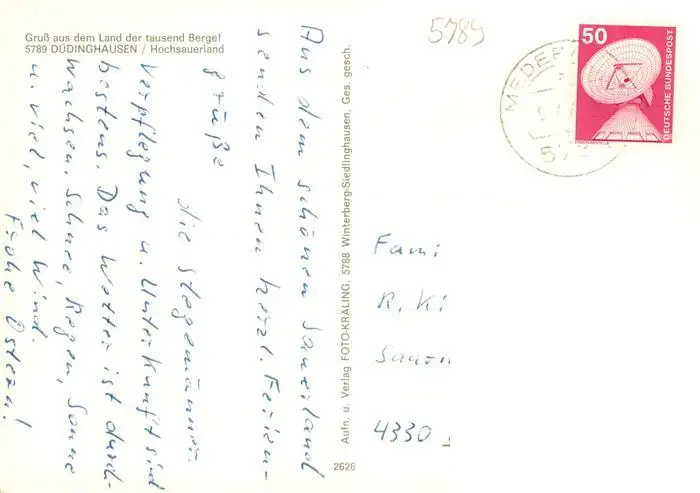 Gruß aus dem Land der tausend Berge!
5789 DÜDINGHAUSEN / Hochsauerland
5789
50
DEUTSCHE BUNDESPOST
MEDE
57
Aus dem schönen Sauerland
senden Ihnen herzl. Ferien-
grüße
die Stegemänner.
Verpflegung u. Unterkunft sind
bestens. Das Wetter ist durch-
wachsen. Schnee, Regen, Sonne
u. viel, viel Wind.
Frohe Ostern!
Aufn. u. Verlag FOTO-KRÄLING, 5788 Winterberg-Siedlinghausen, Ges. gesch.
2626
Fami
R. Ki
4330